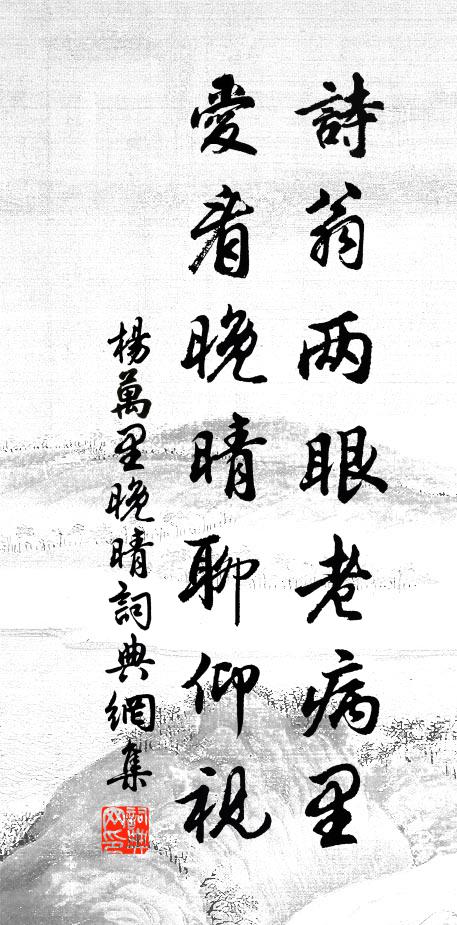 詩翁两眼老病里
愛看晚晴聊仰視
楊萬里晚晴詞典網集
詞典网印